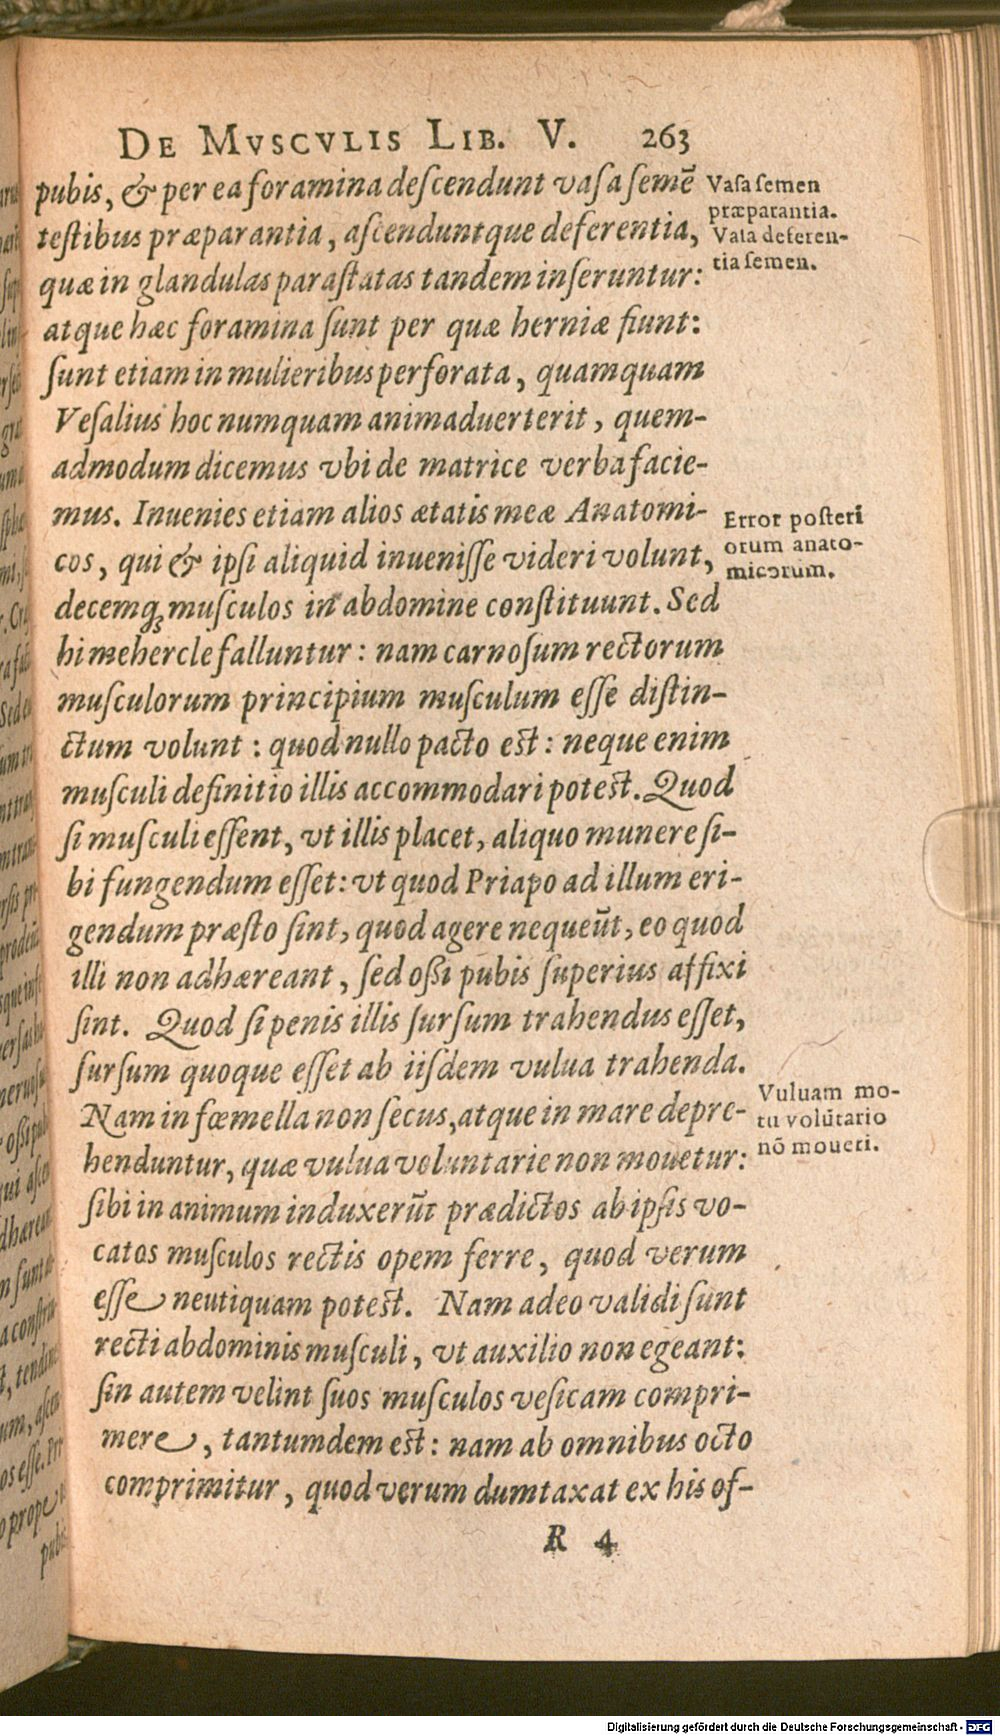 DE MVSCVLIS LIB. V. 263
pubis, & per ea foramina deſcendunt vaſa ſemē
teſtibus præparantia, aſcenduntque deferentia,
quæ in glandulas paraſtatas tandem inſeruntur:
atque hæc foramina ſunt per quæ herniæ fiunt:
ſunt etiam in mulieribus perforata, quamquam
Veſalius hoc numquam animaduerterit, quem-
admodum dicemus vbi de matrice verba facie-
mus. Inuenies etiam alios ætatis meæ Anatomi-
cos, qui & ipſi aliquid inueniſſe videri volunt,
decemq; muſculos in abdomine conſtituunt. Sed
hi mehercle falluntur: nam carnoſum rectorum
muſculorum principium muſculum eſſe diſtin-
ctum volunt: quod nullo pacto eſt: neque enim
muſculi definitio illis accommodari poteſt. Quod
ſi muſculi eſſent, vt illis placet, aliquo munere ſi-
bi fungendum eſſet: vt quod Priapo ad illum eri-
gendum præſto ſint, quod agere nequeūt, eo quod
illi non adhæreant, ſed oßi pubis ſuperius affixi
ſint. Quod ſi penis illis ſurſum trahendus eſſet,
ſurſum quoque eſſet ab iiſdem vulua trahenda.
Nam in fœmella non ſecus, atque in mare depre-
henduntur, quæ vulua voluntarie non mouetur:
ſibi in animum induxerūt prædictos ab ipſis vo-
catos muſculos rectis opem ferre, quod verum
eſſe neutiquam poteſt. Nam adeo validi ſunt
recti abdominis muſculi, vt auxilio non egeant:
ſin autem velint ſuos muſculos veſicam compri-
mere, tantumdem eſt: nam ab omnibus octo
comprimitur, quod verum dumtaxat ex his of-
R 4
Vaſa ſemen
præparantia.
Vaſa deferen-
tia ſemen.
Error poſteri
orum anato-
micorum.
Vuluam mo-
tu volūtario
nō moueri.
Digitalisierung gefördert durch die Deutsche Forschungsgemeinschaft - DFG